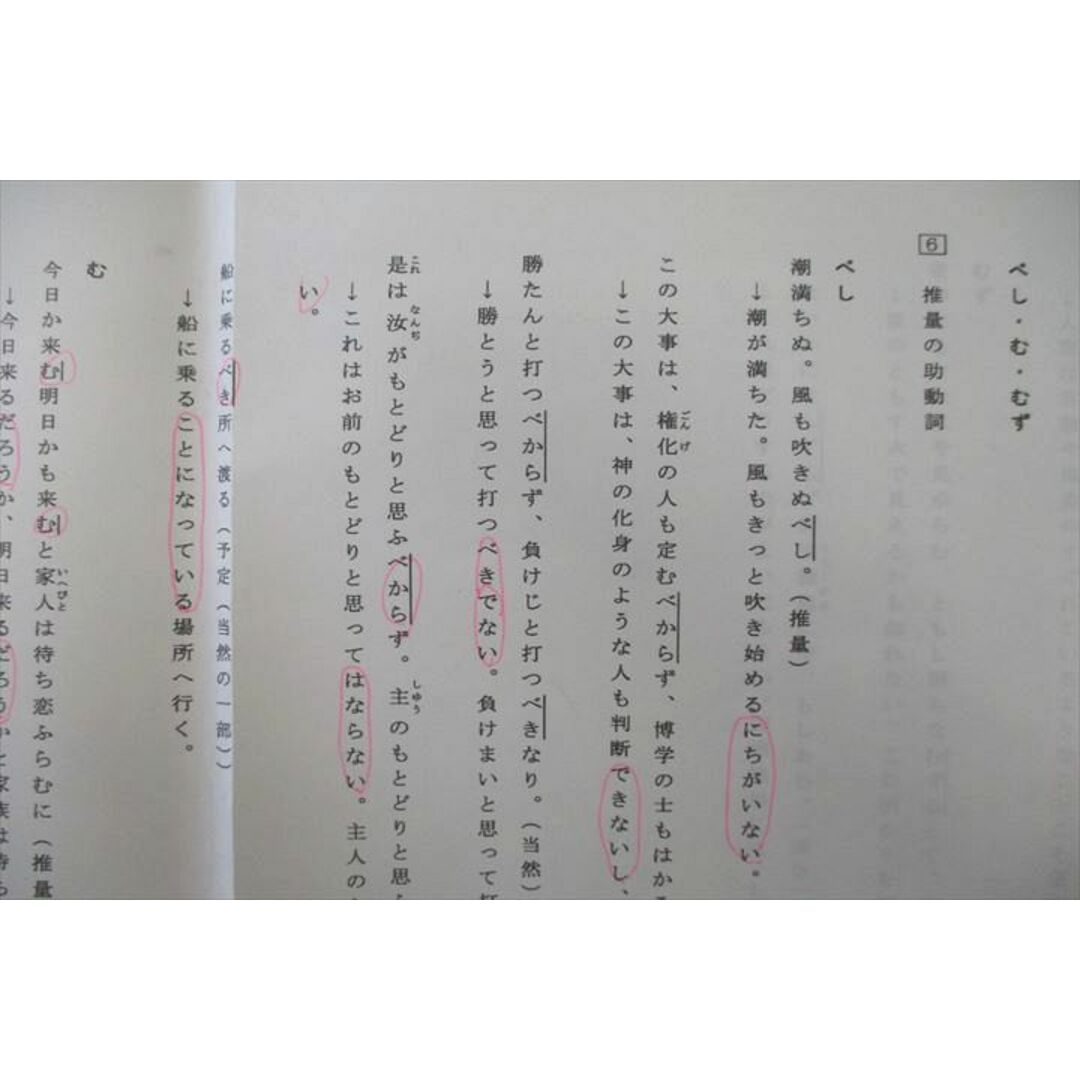 べし・む・むず
6 推量の助動詞
べし
潮満ちぬ。風も吹きぬべし。(推量)
↓潮が満ちた。風もきっと吹き始めるにちがいない。
この大事は、権化の人も定むべからず、博学の士もはか
ごんげ
↓この大事は、神の化身のような人も判断できないし、
勝たんと打つべからず、負けじと打つべきなり。(当然)
↓勝とうと思って打つべきでない。負けまいと思って打
是は汝がもとどりと思ふべからず。主のもとどりと思ふ
これ なんぢ しゆう
↓これはお前のもとどりと思ってはならない。主人の
い。
船に乗るべき所へ渡る(予定(当然の一部))
↓船に乗ることになっている場所へ行く。
む
今日か来む明日かも来むと家人は待ち恋ふらむに(推量
いへびと
↓今日来るだろうか、明日来るだろうかと家族は待ち